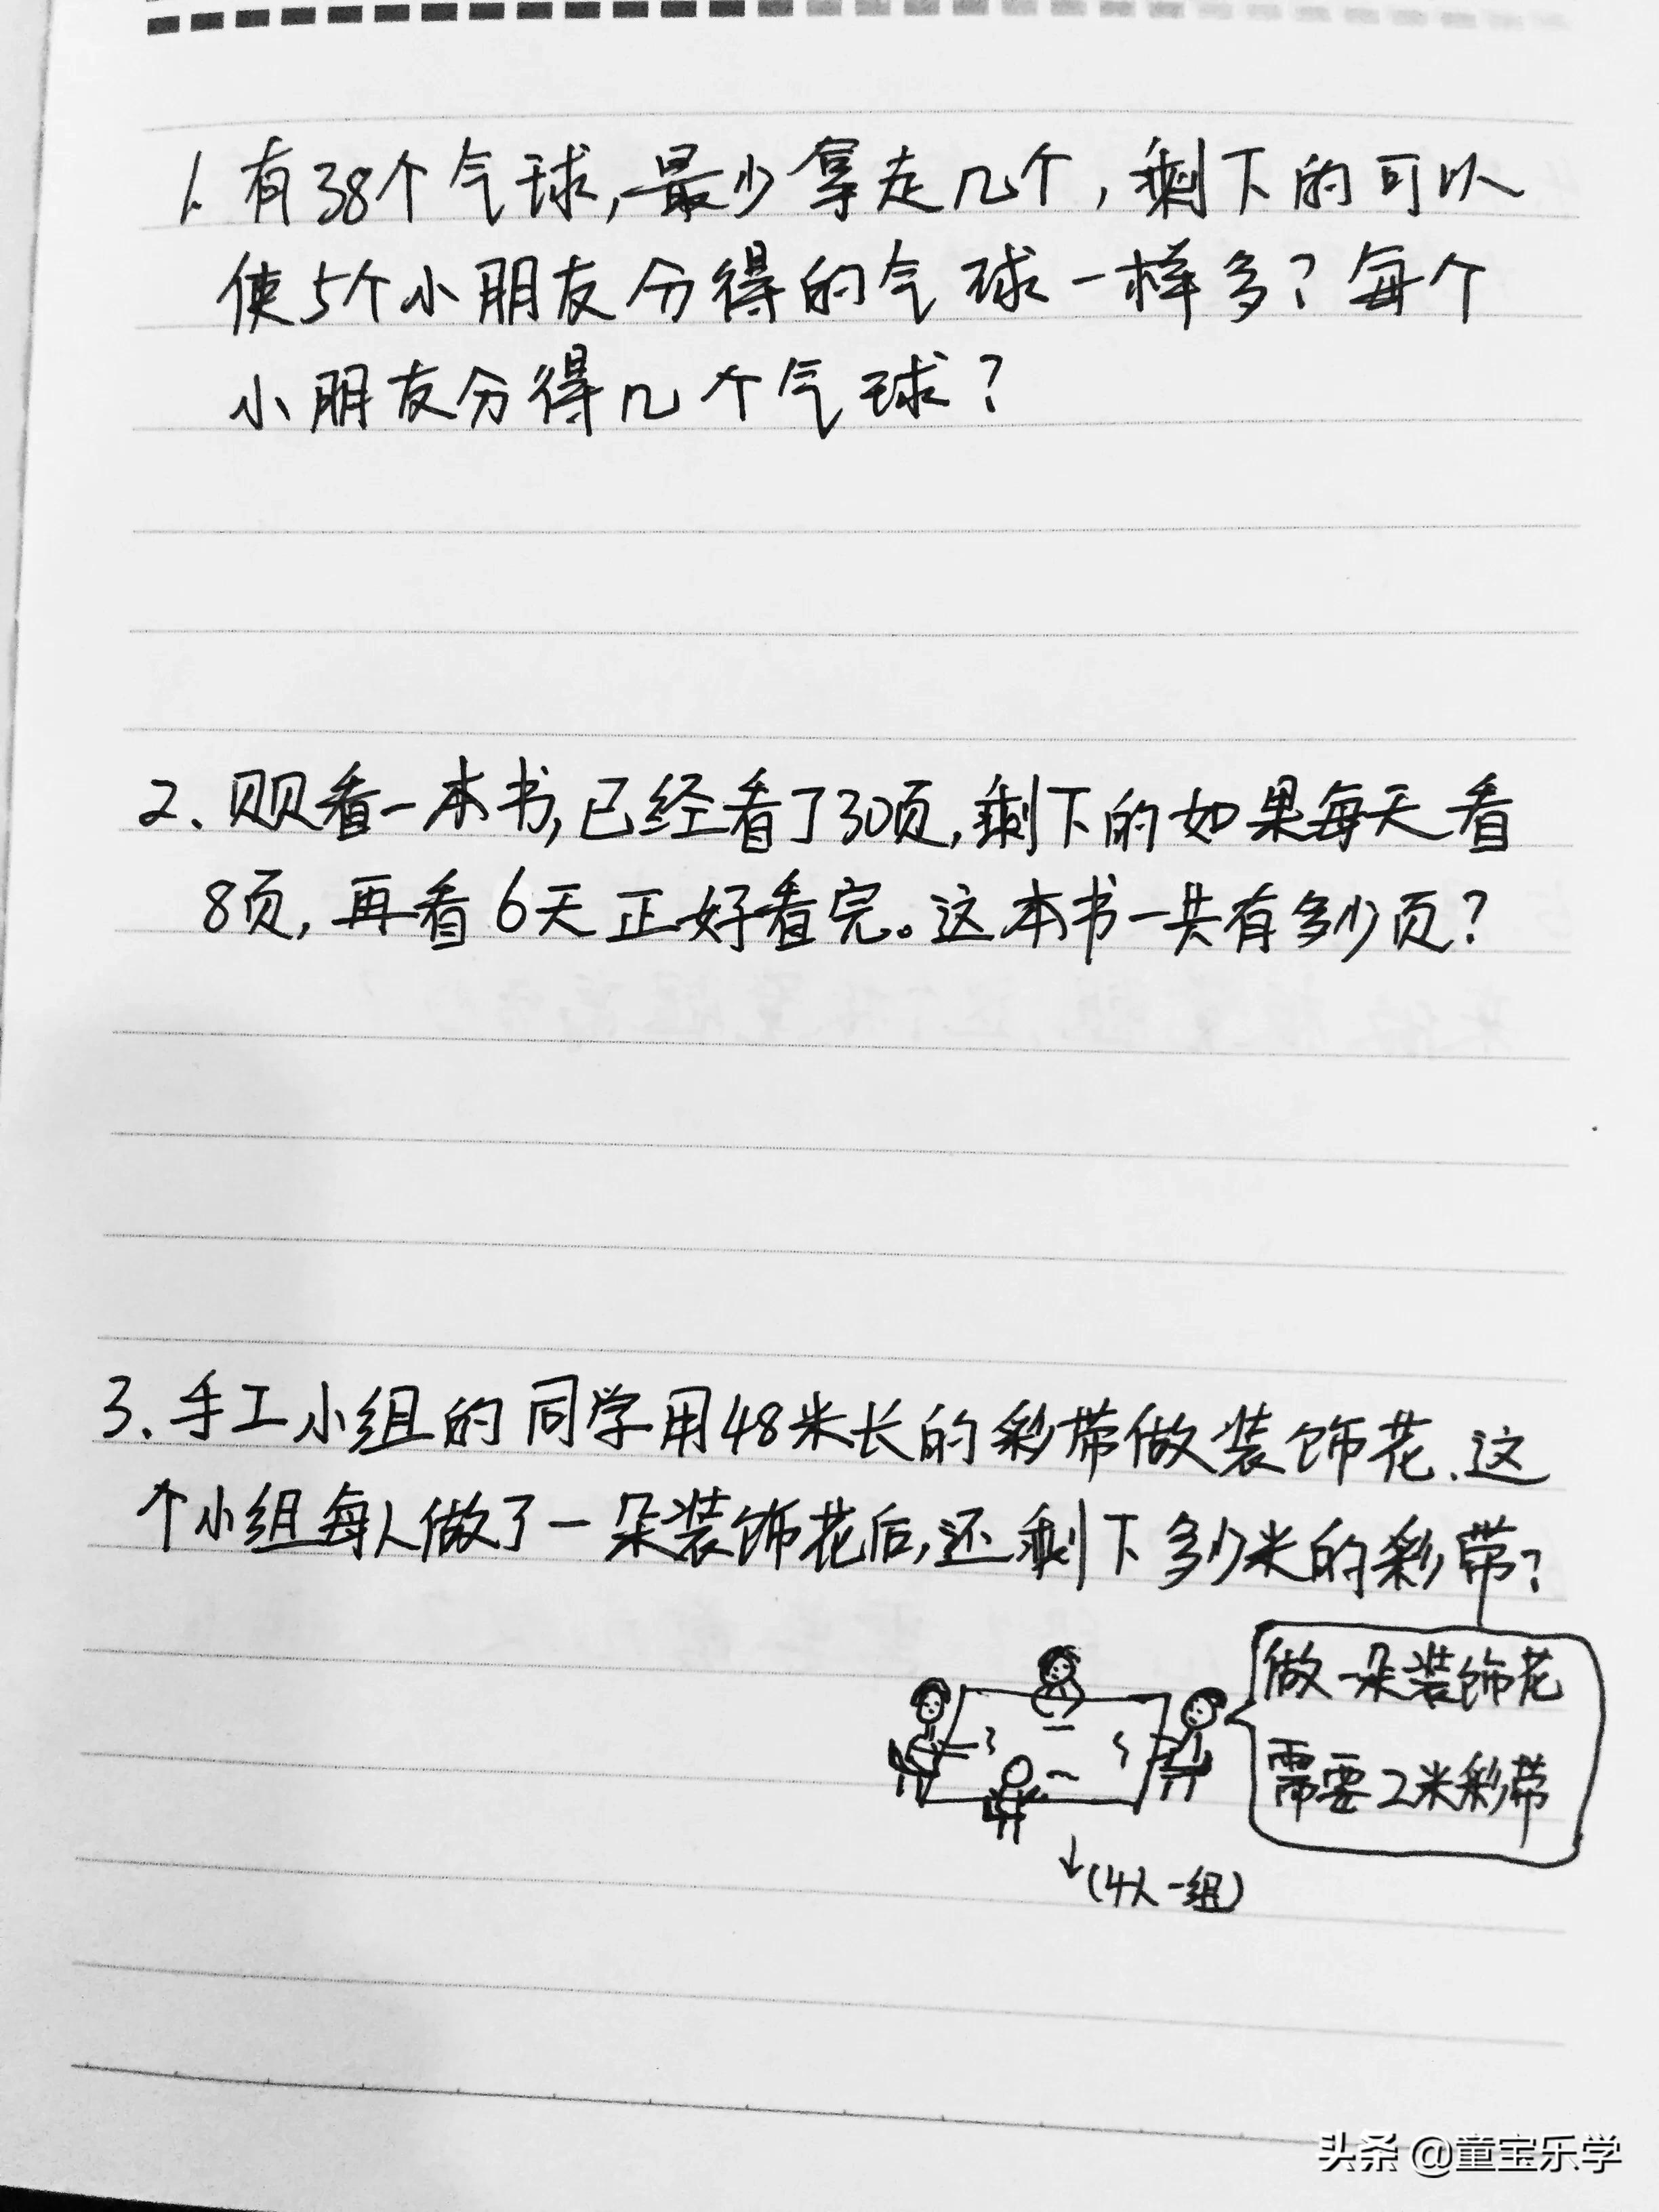 1. 有38个气球,最少拿走几个,剩下的可以
使5个小朋友分得的气球一样多?每个
小朋友分得几个气球?
2、贝贝看一本书,已经看了30页,剩下的如果每天看
8页,再看6天正好看完。这本书一共有多少页?
3、手工小组的同学用48米长的彩带做装饰花、这
个小组每人做了一朵装饰花后,还剩下多少米的彩带?
做一朵装饰花
需要2米彩带
(4人一组)
头条@童宝乐学